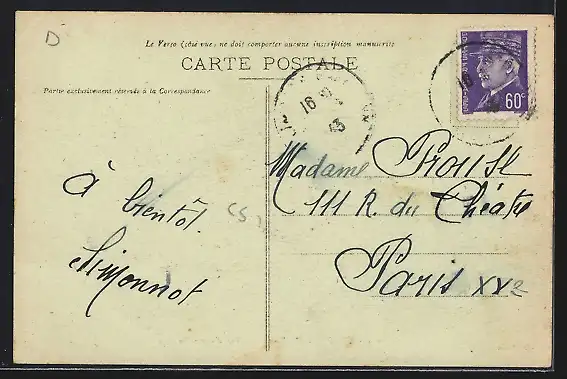 D
Le Verso (côté vue) ne doit comporter aucune inscription manuscrite
CARTE POSTALE
Partie exclusivement réservée à la Correspondance
16
43
16
60c
Madame Prouse
111 R. du Théâtre
Paris XVe
à bientôt.
Simonnot
CS